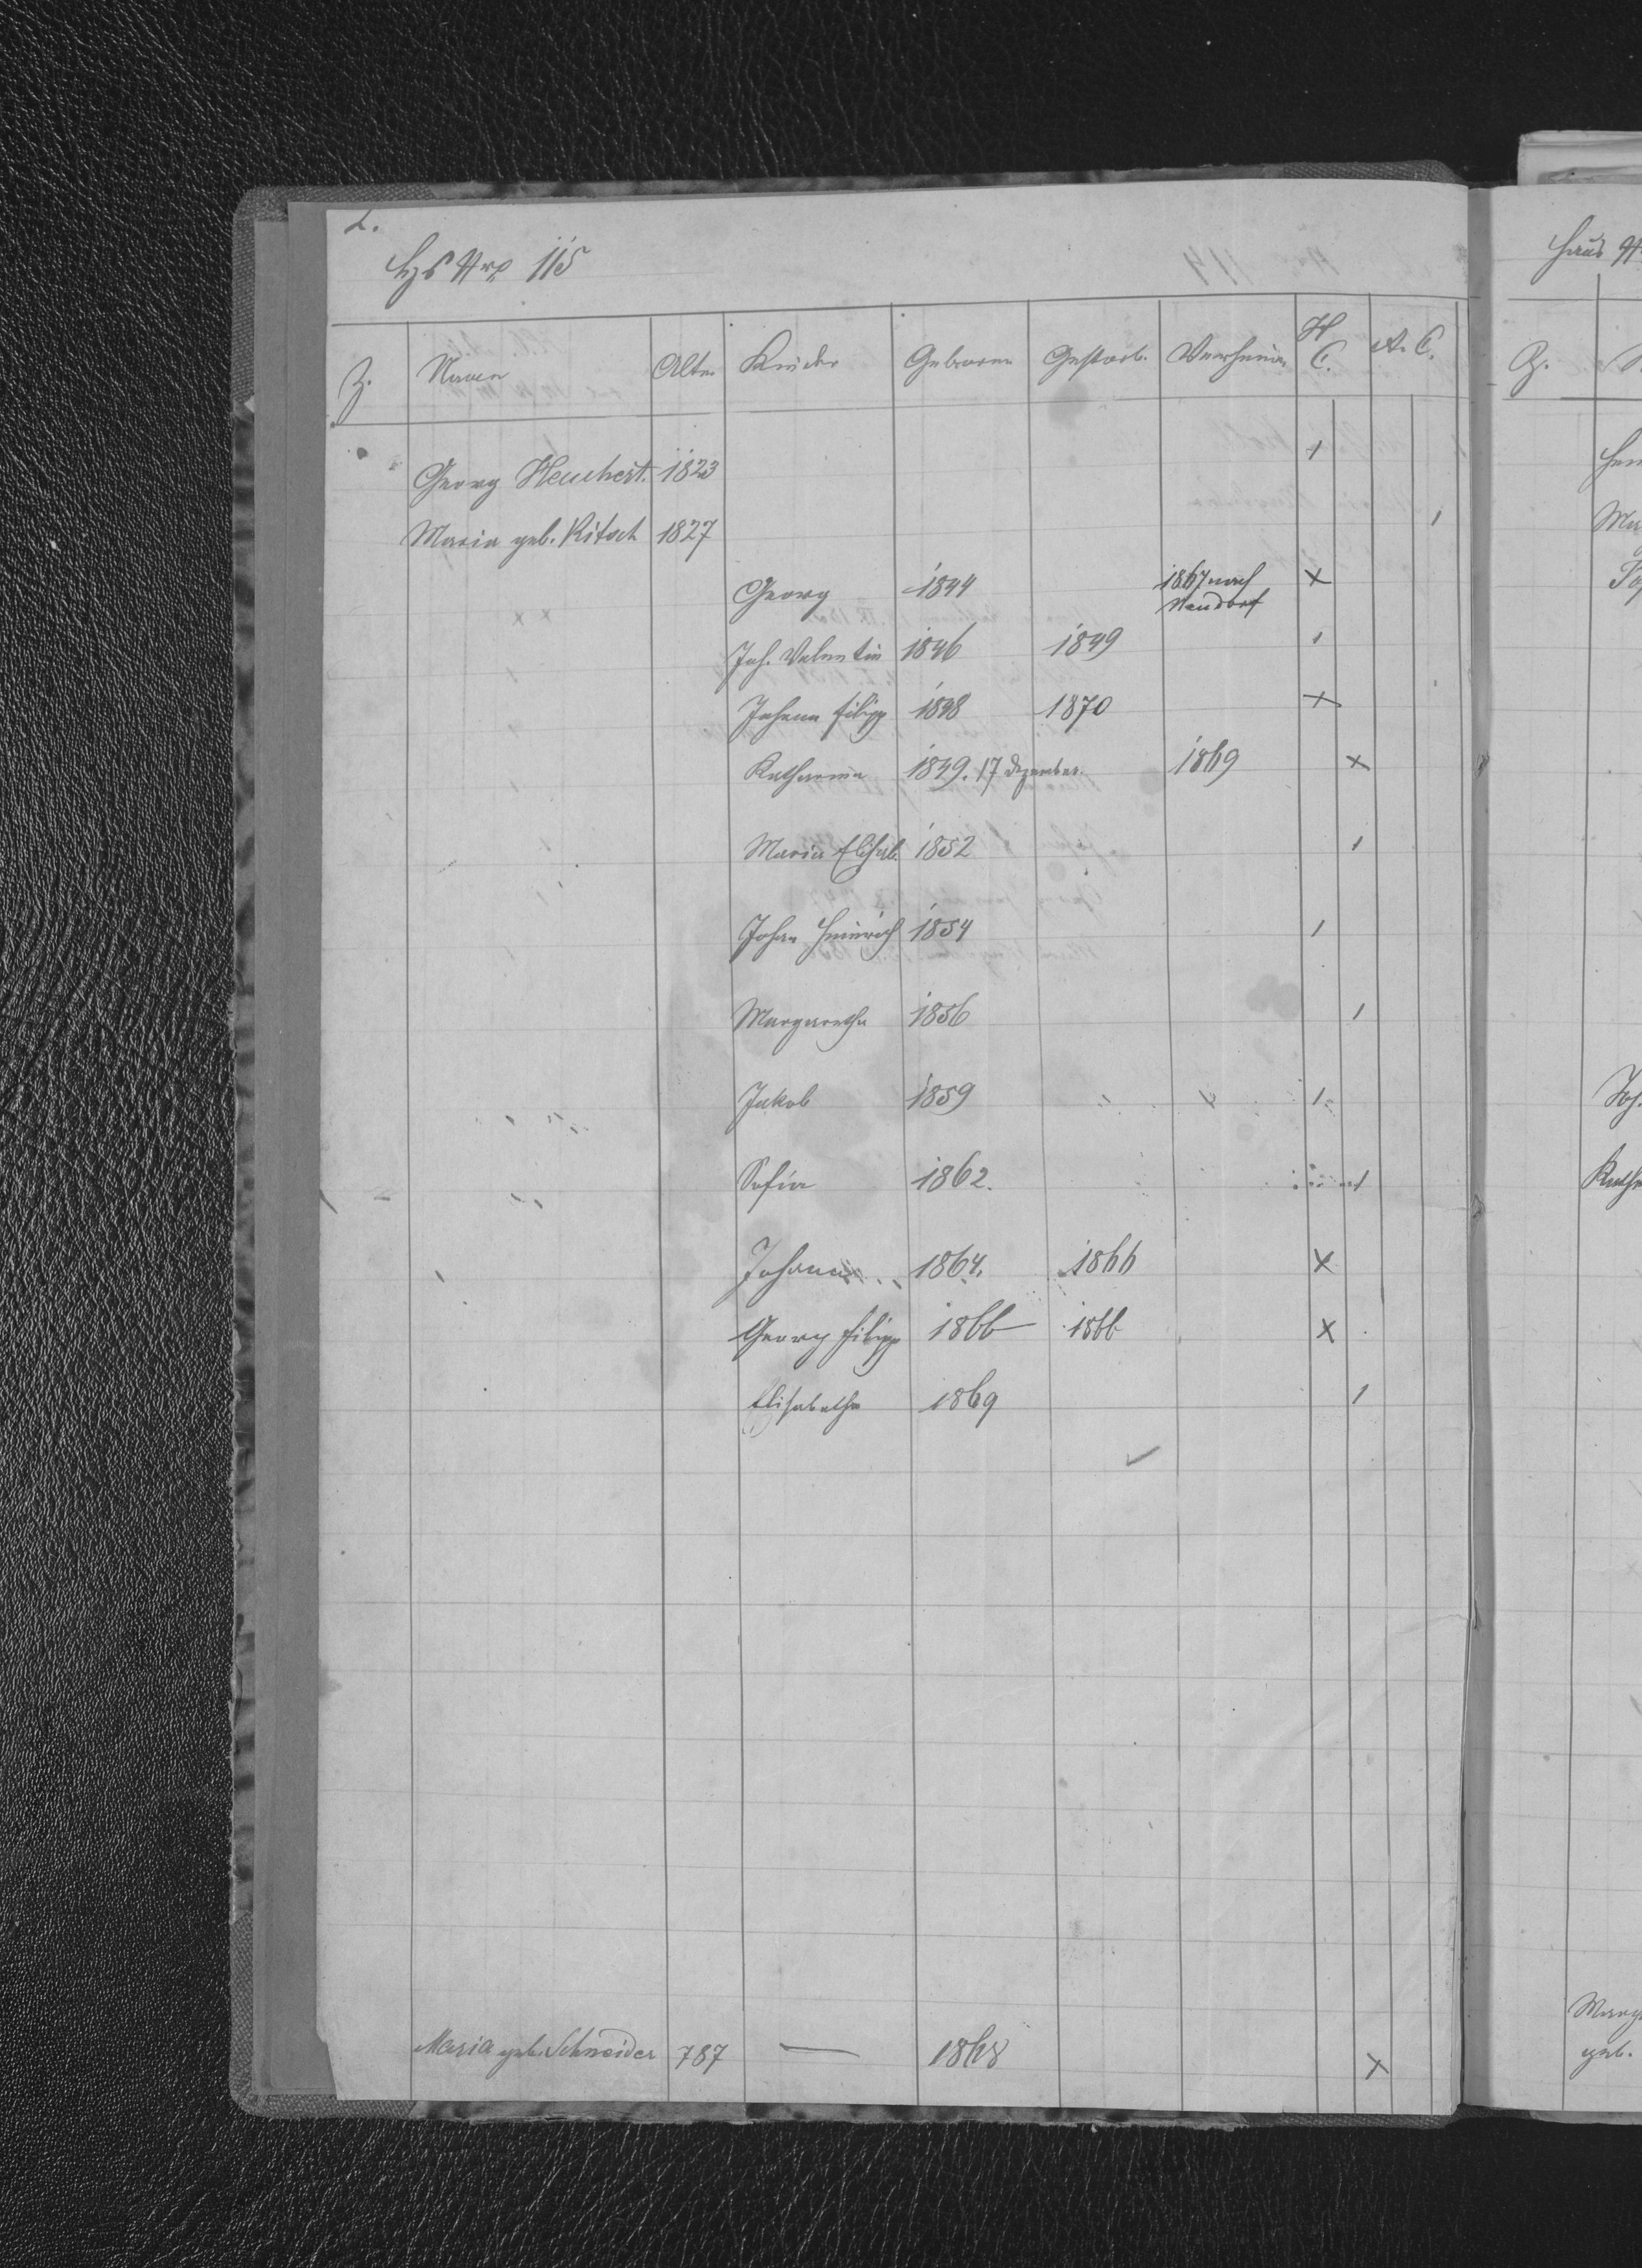 2.
Hs Nro 115
Z. Namen Alter Kinder Geboren Gestorb. H. C. A. C.
Georg Heuchert. 1823 1
Maria geb. Ritsch 1827 1
Georg 1844 1867 nach Neudorf x
Joh. Valentin 1846 1849 1
Johann Filipp 1848 1870 x
Katharina 1849. 17 Dezember. 1869 x
Maria Elisab. 1852 1
Johan Heinrich 1854 1
Margaretha 1856 1
Jakob 1859 1
Sofia 1862. 1
Johann 1864. 1866 x
Georg Filipp 1866 1866 x
Elisabetha 1869 1
Maria geb. Schneider 787 — 1868 x
Haus N